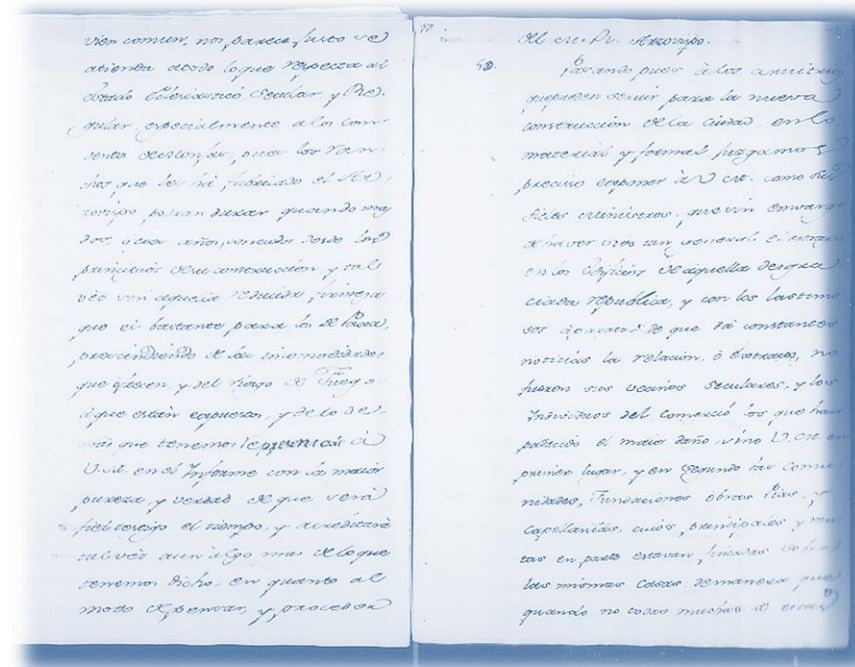 vien comun, nos parece justo se
atienda atodo loque respecta al
Estado Eclesiastico, Secular, y Re-
gular, especialmente alos Con-
ventos de Monjas; pues los Ran-
chos que les há fabricado el Ar-
zovispo podran durar quando mas
dos, o tres años, contados desde los
principios desu construccion, y tal
vés sin aquella reducida firmeza
que es bastante para los de Paxa,
prescindiendo de las incomodidades
que ofrecen, y del riesgo de Fuego
aque están expuestos, y de lo de-
mas que tenemos representado à
V.M. en el Informe con la maior
pureza, y verdad de que será
fiel testigo el tiempo, y acreditará
tal vés aun algo mas de lo que
tenemos dicho, en quanto al
modo de pensar, y proceder
57
del M. Rv. Arzovispo.
50. Pasando pues à los arvitrios
que pueden servir para la nueva
construcción de la ciudad, en lo
material y formal juzgamos
preciso exponer à V.M. como sus
fieles Ministros, que sin embargo
de haver sido tan general el estrago
en los Edificios de aquella desgra
ciada republica, y con los lastimo
sos aparatos de que dá constantes
noticias la relación, ó Extracto, no
fueron sus vecinos seculares, y los
Individuos del Comerció los que han
padecido el maior daño, sino V.M. en
primer lugar, y en segundo las Comu
nidades, Fundaciones obras Pias, y
Capellanias, cuios principales y ren
tas en parte estavan fincadas sobre
las mismas Casas: demanera que
quando no todas muchas de ellas